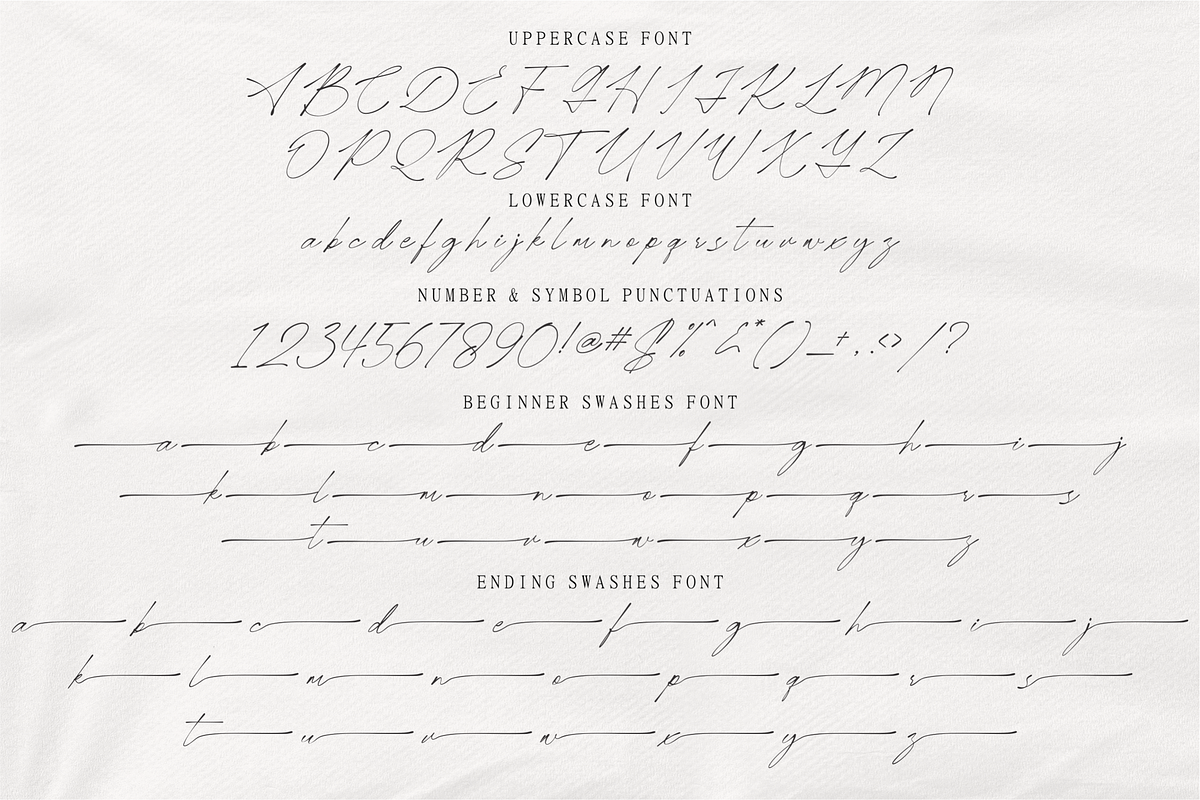 UPPERCASE FONT
ABCDEFGHIJKLMN
OPQRSTUVWXYZ
LOWERCASE FONT
abcdefghijklmnopqrstuvwxyz
NUMBER & SYMBOL PUNCTUATIONS
1234567890!@#$%^&*()_+,.<>/?
BEGINNER SWASHES FONT
a b c d e f g h i j
k l m n o p q r s
t u v w x y z
ENDING SWASHES FONT
a b c d e f g h i j
k l m n o p q r s
t u v w x y z